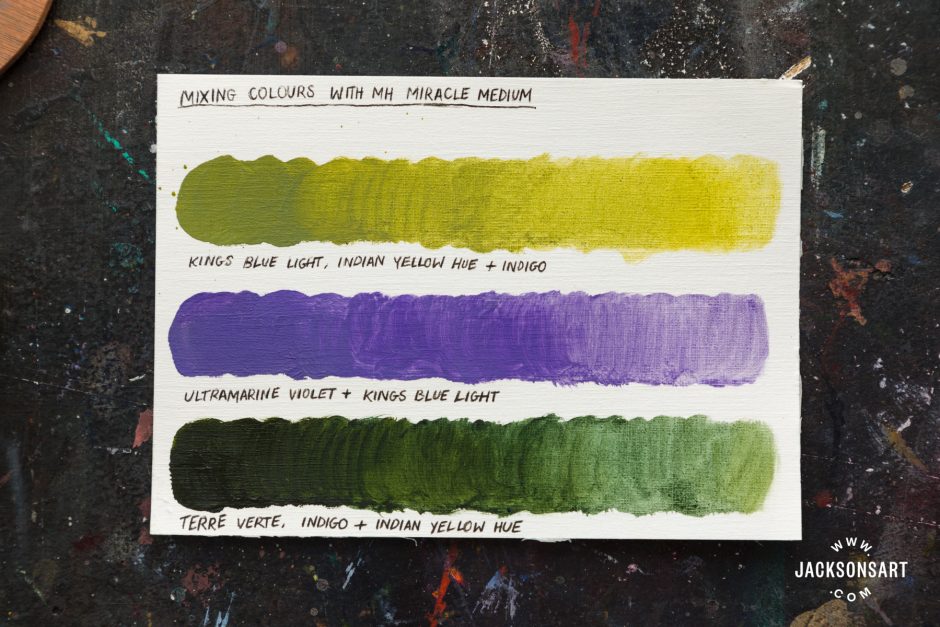 MIXING COLOURS WITH MH MIRACLE MEDIUM
KINGS BLUE LIGHT, INDIAN YELLOW HUE + INDIGO
ULTRAMARINE VIOLET + KINGS BLUE LIGHT
TERRÉ VERTE, INDIGO + INDIAN YELLOW HUE
WWW
JACKSONSART
.COM